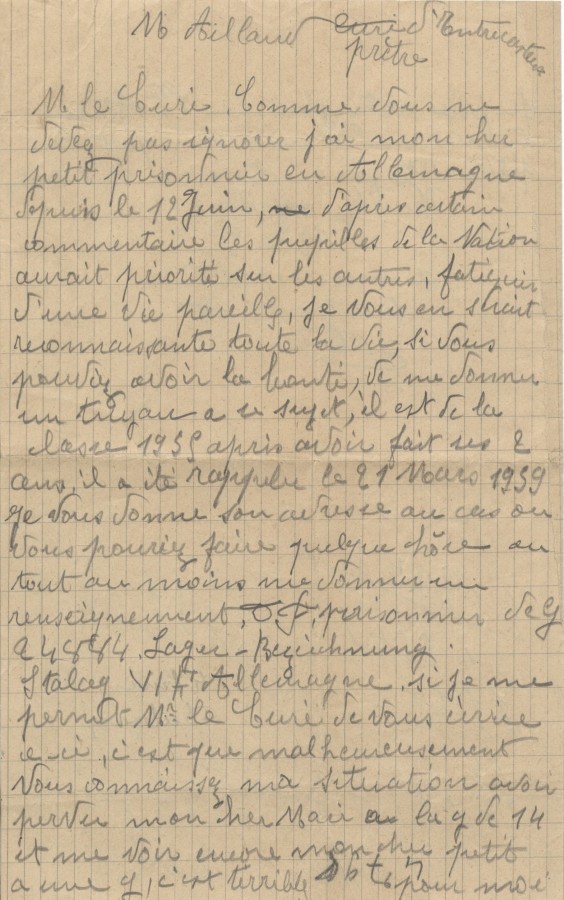 M Aillaud curé d'Entrecasteaux
prêtre
M le Curé. Comme vous ne
devez pas ignorer j'ai mon cher
petit prisonnier en Allemagne
depuis le 12 Juin, ne d'après certain
commentaire les pupilles de la Nation
aurait périorité sur les autres, fatiguer
d'une vie pareille, je vous en serait
reconnaissante toute la vie, si vous
pouviez avoir la bonté, de me donner
un tuyau a se sujet, il est de la
classe 1935 après avoir fait ses 2
ans, il a été rappeler le 21 Mars 1939
je vous donne son adresse au cas ou
vous pouriez faire quelque chôse ou
tout au moins me donner un
renseignement, prisonnier de G
24884. Lager-Bezeichnung.
Stalag VII A Allemagne. si je me
permet Mr le Curé de vous écrire
c-ci, c'est que malheureusement
vous connaissez ma situation avoir
perdu mon cher Mari a la g de 14
et me voir encore mon cher petit
a une g, c'est terrible pour moi